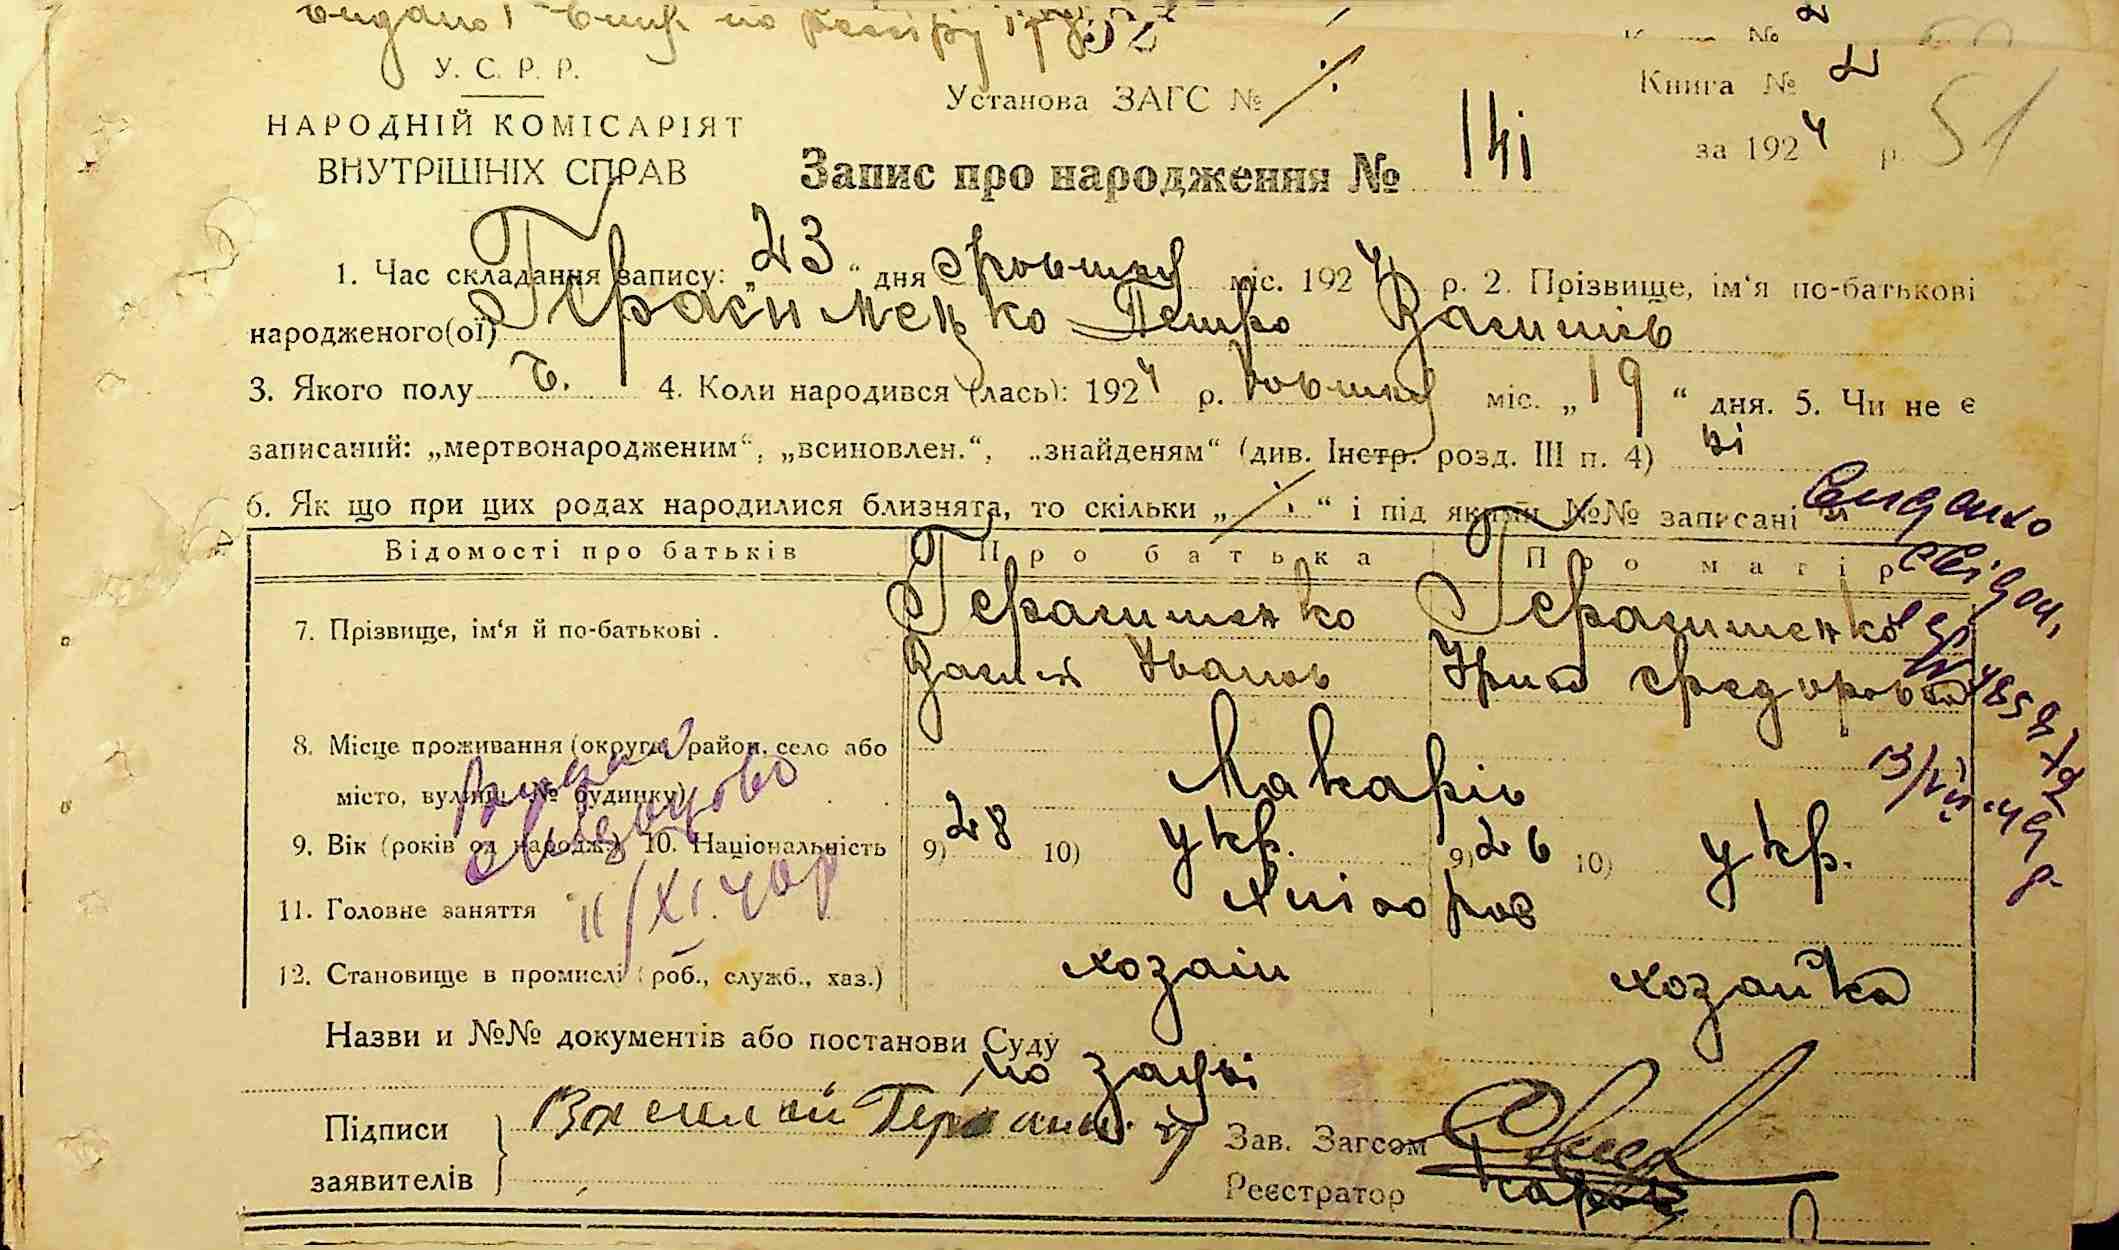 видано
У. С. Р. Р.
НАРОДНІЙ КОМІСАРІЯТ
ВНУТРІШНІХ СПРАВ
Установа ЗАГС №
Книга № 2
за 1924 р. 51
Запис про народження № 141
1. Час складання запису: „23“ дня міс. 1924 р. 2. Прізвище, ім‘я по-батькові
народженого(ої) Герасименко Петро Василів
3. Якого полу ч. 4. Коли народився (лась): 1924 р. міс. „19“ дня. 5. Чи не є
записаний: „мертвонародженим“, „всиновлен.“, „знайденям“ (див. Інстр. розд. III п. 4) ні
6. Як що при цих родах народилися близнята, то скільки „ “ і під якими №№ записані
Видано
свідоц.
Відомості про батьків Про батька Про матір
7. Прізвище, ім‘я й по-батькові . Герасименко Герасименко
Василь Іванов
8. Місце проживання (округа, район, село або
місто, вулиця, № будинку) Макарів
13/VII 49 р.
9. Вік (років од народж.) 10. Національність 9) 28 10) укр. 9) 26 10) укр.
11. Головне заняття
12. Становище в промислі (роб., служб., хаз.) хозаін хозайка
Назви и №№ документів або постанови Суду
по заяві
Підписи
заявителів
Василий
Зав. Загсом
Реєстратор